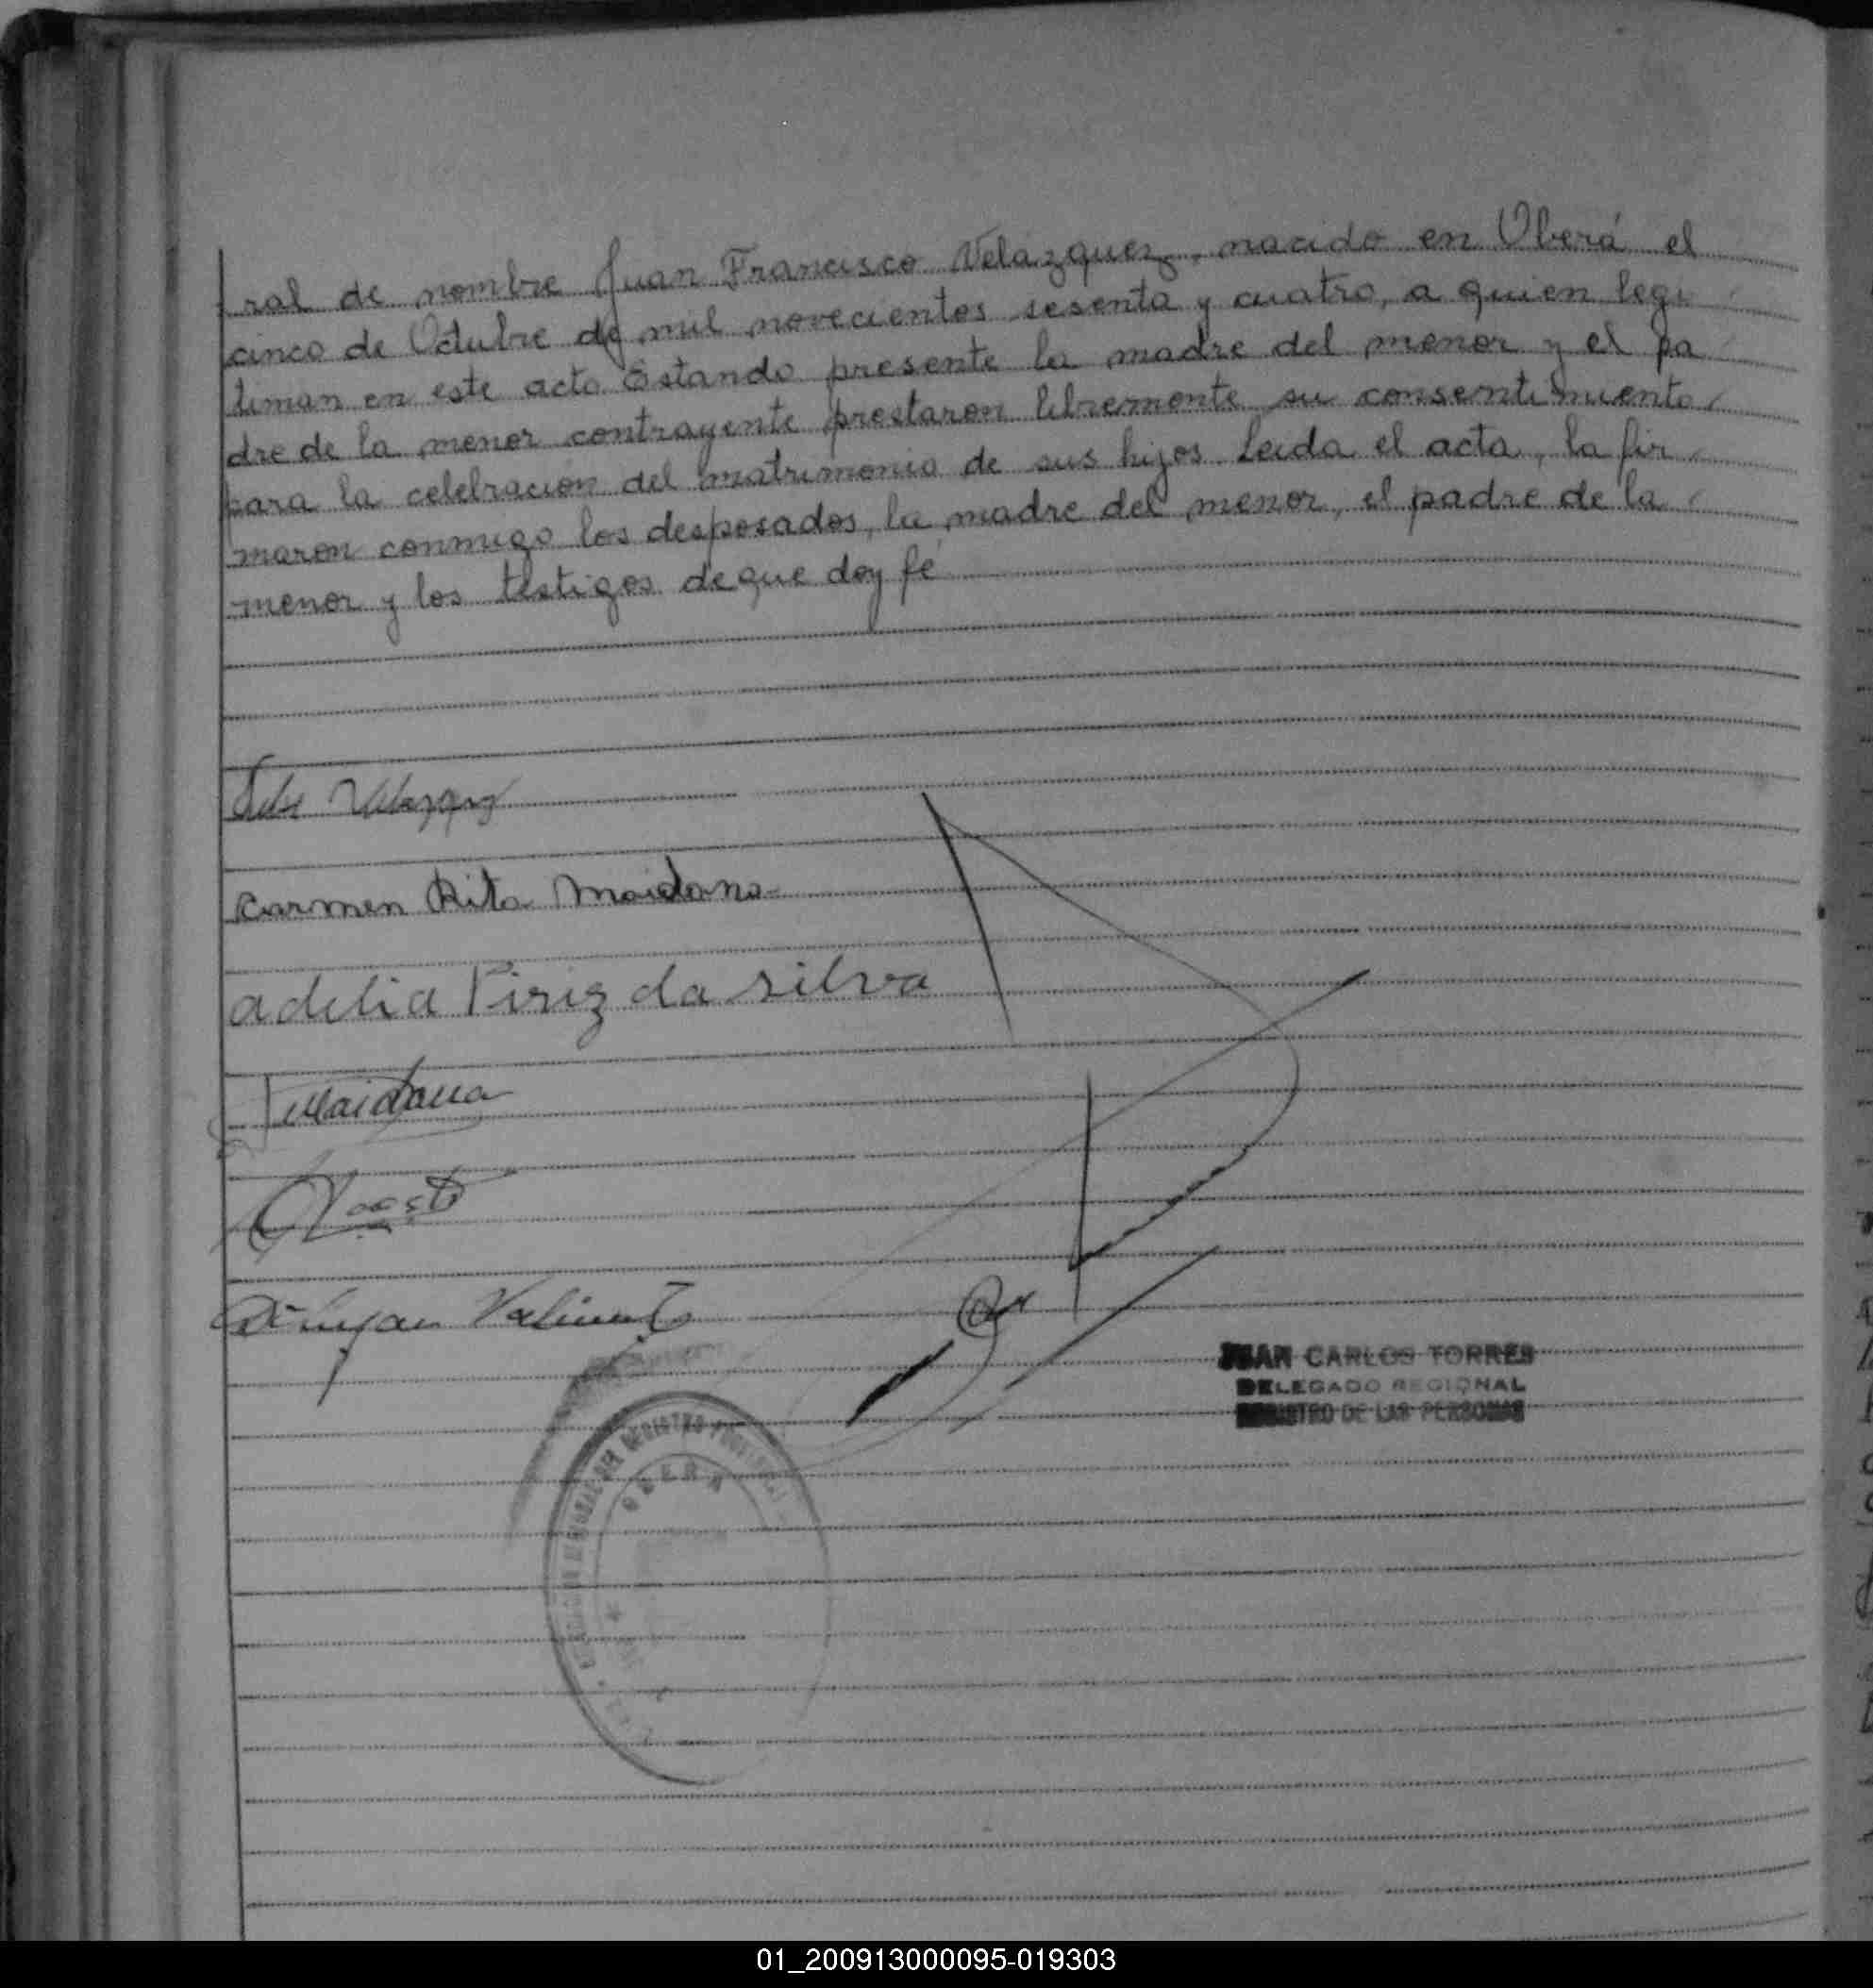 ral de nombre Juan Francisco Velazquez, nacido en Oberá el
cinco de Octubre de mil novecientos sesenta y cuatro, a quien legi
timan en este acto. Estando presente la madre del menor y el pa
dre de la menor contrayente prestaron libremente su consentimiento
para la celebración del matrimonio de sus hijos. Leida el acta, la fir
maron conmigo los desposados, la madre del menor, el padre de la
menor y los testigos de que doy fé
Velazquez
Carmen Rita Maidana
adelia Piriz da silva
Maidana
JUAN CARLOS TORRES
DELEGADO REGIONAL
REGISTRO DE LAS PERSONAS
REGISTRO
OBERA
01_200913000095-019303